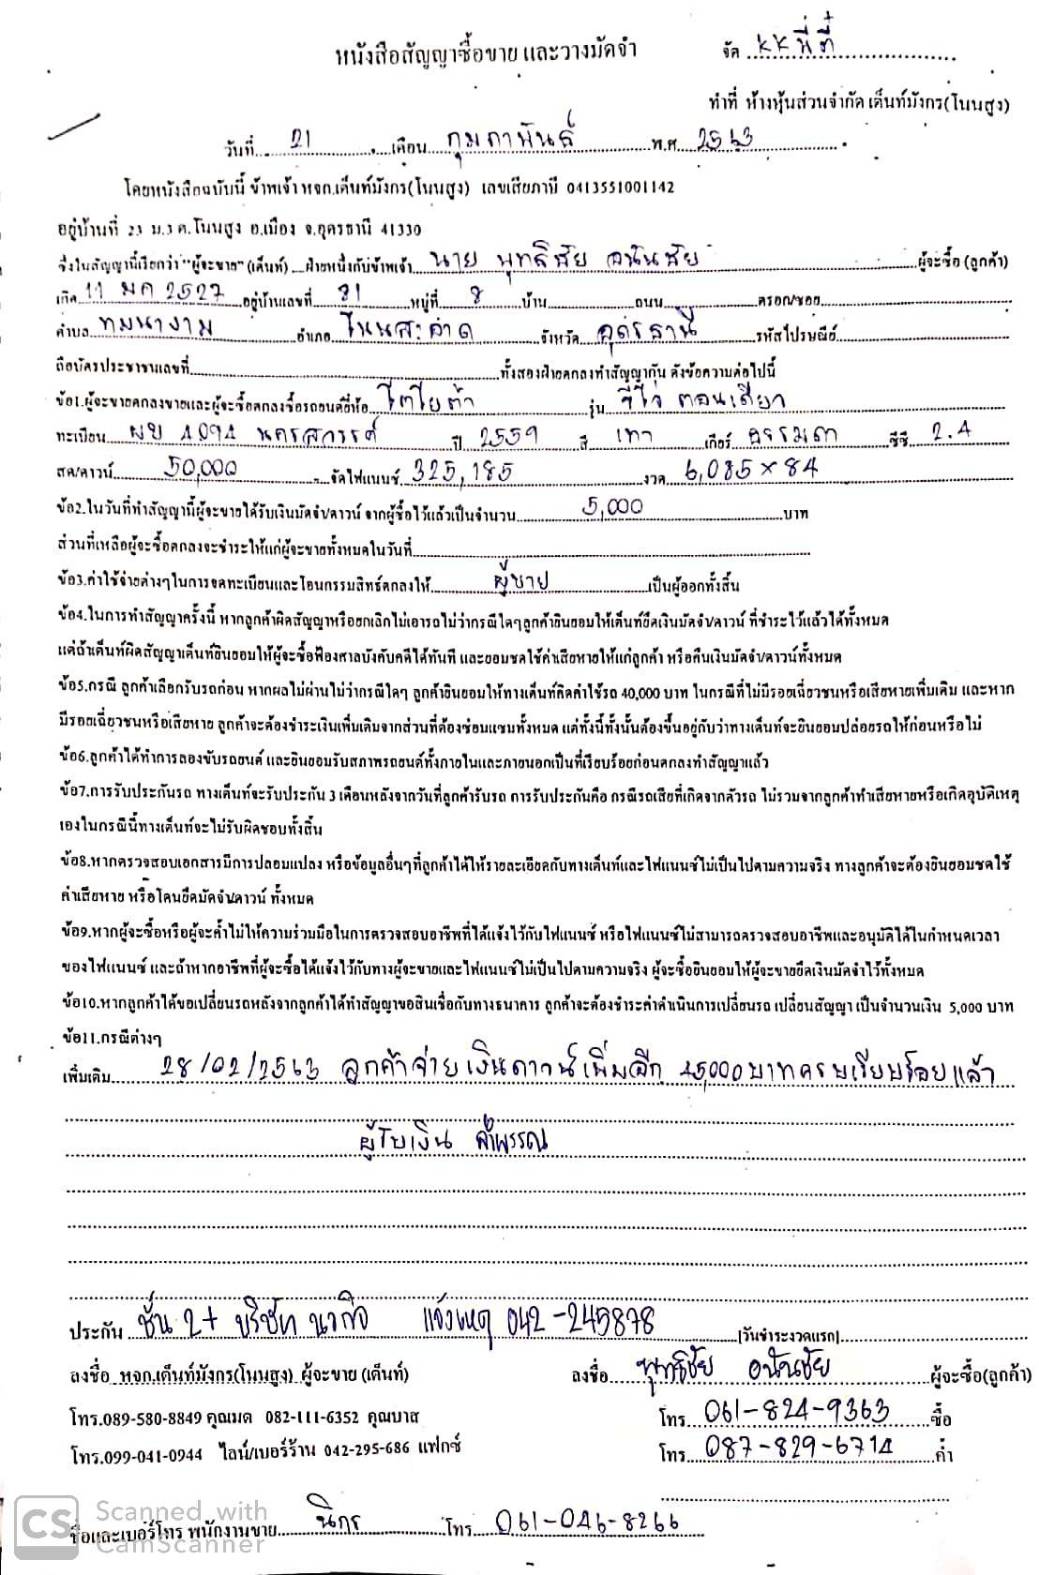 หนังสือสัญญาซื้อขาย และวางมัดจำ
จัด KK พี่ตี๋
ทำที่ ห้างหุ้นส่วนจำกัด เต็นท์มังกร(โนนสูง)
วันที่ 21 เดือน กุมภาพันธ์ พ.ศ. 2563
โดยหนังสือฉบับนี้ ข้าพเจ้า หจก.เต็นท์มังกร(โนนสูง) เลขเสียภาษี 0413551001142
อยู่บ้านที่ 23 ม.3 ต.โนนสูง อ.เมือง จ.อุดรธานี 41330
ซึ่งในสัญญานี้เรียกว่า "ผู้จะขาย" (เต็นท์) ฝ่ายหนึ่งกับข้าพเจ้า นาย พุทธิชัย อนันชัย ผู้จะซื้อ (ลูกค้า)
เกิด 11 มค 2527 อยู่บ้านเลขที่ 31 หมู่ที่ 8 บ้าน ถนน ตรอก/ซอย
ตำบล ทมนางาม อำเภอ โนนสะอาด จังหวัด อุดรธานี รหัสไปรษณีย์
ถือบัตรประชาชนเลขที่ ทั้งสองฝ่ายตกลงทำสัญญากัน ดังข้อความต่อไปนี้
ข้อ1.ผู้จะขายตกลงขายและผู้จะซื้อตกลงซื้อรถยนต์ยี่ห้อ โตโยต้า รุ่น วีโก้ ตอนเดียว
ทะเบียน ผย 4094 นครสวรรค์ ปี 2559 สี เทา เกียร์ ธรรมดา ซีซี 2.4
สด/ดาวน์ 50,000 จัดไฟแนนซ์ 325,185 งวด 6,085 × 84
ข้อ2.ในวันที่ทำสัญญานี้ผู้จะขายได้รับเงินมัดจำ/ดาวน์ จากผู้ซื้อไว้แล้วเป็นจำนวน 5,000 บาท
ส่วนที่เหลือผู้จะซื้อตกลงจะชำระให้แก่ผู้จะขายทั้งหมดในวันที่
ข้อ3.ค่าใช้จ่ายต่างๆในการจดทะเบียนและโอนกรรมสิทธิ์ตกลงให้ ผู้ขาย เป็นผู้ออกทั้งสิ้น
ข้อ4.ในการทำสัญญาครั้งนี้ หากลูกค้าผิดสัญญาหรือยกเลิกไม่เอารถไม่ว่ากรณีใดๆลูกค้ายินยอมให้เต็นท์ยึดเงินมัดจำ/ดาวน์ ที่ชำระไว้แล้วได้ทั้งหมด
แต่ถ้าเต็นท์ผิดสัญญาเต็นท์ยินยอมให้ผู้จะซื้อฟ้องศาลบังคับคดีได้ทันที และยอมชดใช้ค่าเสียหายให้แก่ลูกค้า หรือคืนเงินมัดจำ/ดาวน์ทั้งหมด
ข้อ5.กรณี ลูกค้าเลือกรับรถก่อน หากผลไม่ผ่านไม่ว่ากรณีใดๆ ลูกค้ายินยอมให้ทางเต็นท์คิดค่าใช้รถ 40,000 บาท ในกรณีที่ไม่มีรอยเฉี่ยวชนหรือเสียหายเพิ่มเติม และหาก
มีรอยเฉี่ยวชนหรือเสียหาย ลูกค้าจะต้องชำระเงินเพิ่มเติมจากส่วนที่ต้องซ่อมแซมทั้งหมด แต่ทั้งนี้ทั้งนั้นต้องขึ้นอยู่กับว่าทางเต็นท์จะยินยอมปล่อยรถให้ก่อนหรือไม่
ข้อ6.ลูกค้าได้ทำการลองขับรถยนต์ และยินยอมรับสภาพรถยนต์ทั้งภายในและภายนอกเป็นที่เรียบร้อยก่อนตกลงทำสัญญาแล้ว
ข้อ7.การรับประกันรถ ทางเต็นท์จะรับประกัน 3 เดือนหลังจากวันที่ลูกค้ารับรถ การรับประกันคือ กรณีรถเสียที่เกิดจากตัวรถ ไม่รวมจากลูกค้าทำเสียหายหรือเกิดอุบัติเหตุ
เองในกรณีนี้ทางเต็นท์จะไม่รับผิดชอบทั้งสิ้น
ข้อ8.หากตรวจสอบเอกสารมีการปลอมแปลง หรือข้อมูลอื่นๆที่ลูกค้าได้ให้รายละเอียดกับทางเต็นท์และไฟแนนซ์ไม่เป็นไปตามความจริง ทางลูกค้าจะต้องยินยอมชดใช้
ค่าเสียหาย หรือโดนยึดมัดจำ/ดาวน์ ทั้งหมด
ข้อ9.หากผู้จะซื้อหรือผู้จะค้ำไม่ให้ความร่วมมือในการตรวจสอบอาชีพที่ได้แจ้งไว้กับไฟแนนซ์ หรือไฟแนนซ์ไม่สามารถตรวจสอบอาชีพและอนุมัติได้ในกำหนดเวลา
ของไฟแนนซ์ และถ้าหากอาชีพที่ผู้จะซื้อได้แจ้งไว้กับทางผู้จะขายและไฟแนนซ์ไม่เป็นไปตามความจริง ผู้จะซื้อยินยอมให้ผู้จะขายยึดเงินมัดจำไว้ทั้งหมด
ข้อ10.หากลูกค้าได้ขอเปลี่ยนรถหลังจากลูกค้าได้ทำสัญญาขอสินเชื่อกับทางธนาคาร ลูกค้าจะต้องชำระค่าดำเนินการเปลี่ยนรถ เปลี่ยนสัญญา เป็นจำนวนเงิน 5,000 บาท
ข้อ11.กรณีต่างๆ
เพิ่มเติม 28/02/2563 ลูกค้าจ่ายเงินดาวน์เพิ่มอีก 45,000 บาทครบเรียบร้อยแล้ว
ผู้รับเงิน ลำพรรณ
ประกัน ชั้น 2+ บริษัท นวกิจ แจ้งเหตุ 042-245878 [วันชำระงวดแรก]
ลงชื่อ หจก.เต็นท์มังกร(โนนสูง) ผู้จะขาย (เต็นท์) ลงชื่อ พุทธิชัย อนันชัย ผู้จะซื้อ(ลูกค้า)
โทร.089-580-8849 คุณมด 082-111-6352 คุณบาส โทร 061-824-9363 ซื้อ
โทร.099-041-0944 ไลน์/เบอร์ร้าน 042-295-686 แฟกซ์ โทร 087-829-6714 ค้ำ
ชื่อและเบอร์โทร พนักงานขาย นิกร โทร 061-046-8266
CS Scanned with
CamScanner